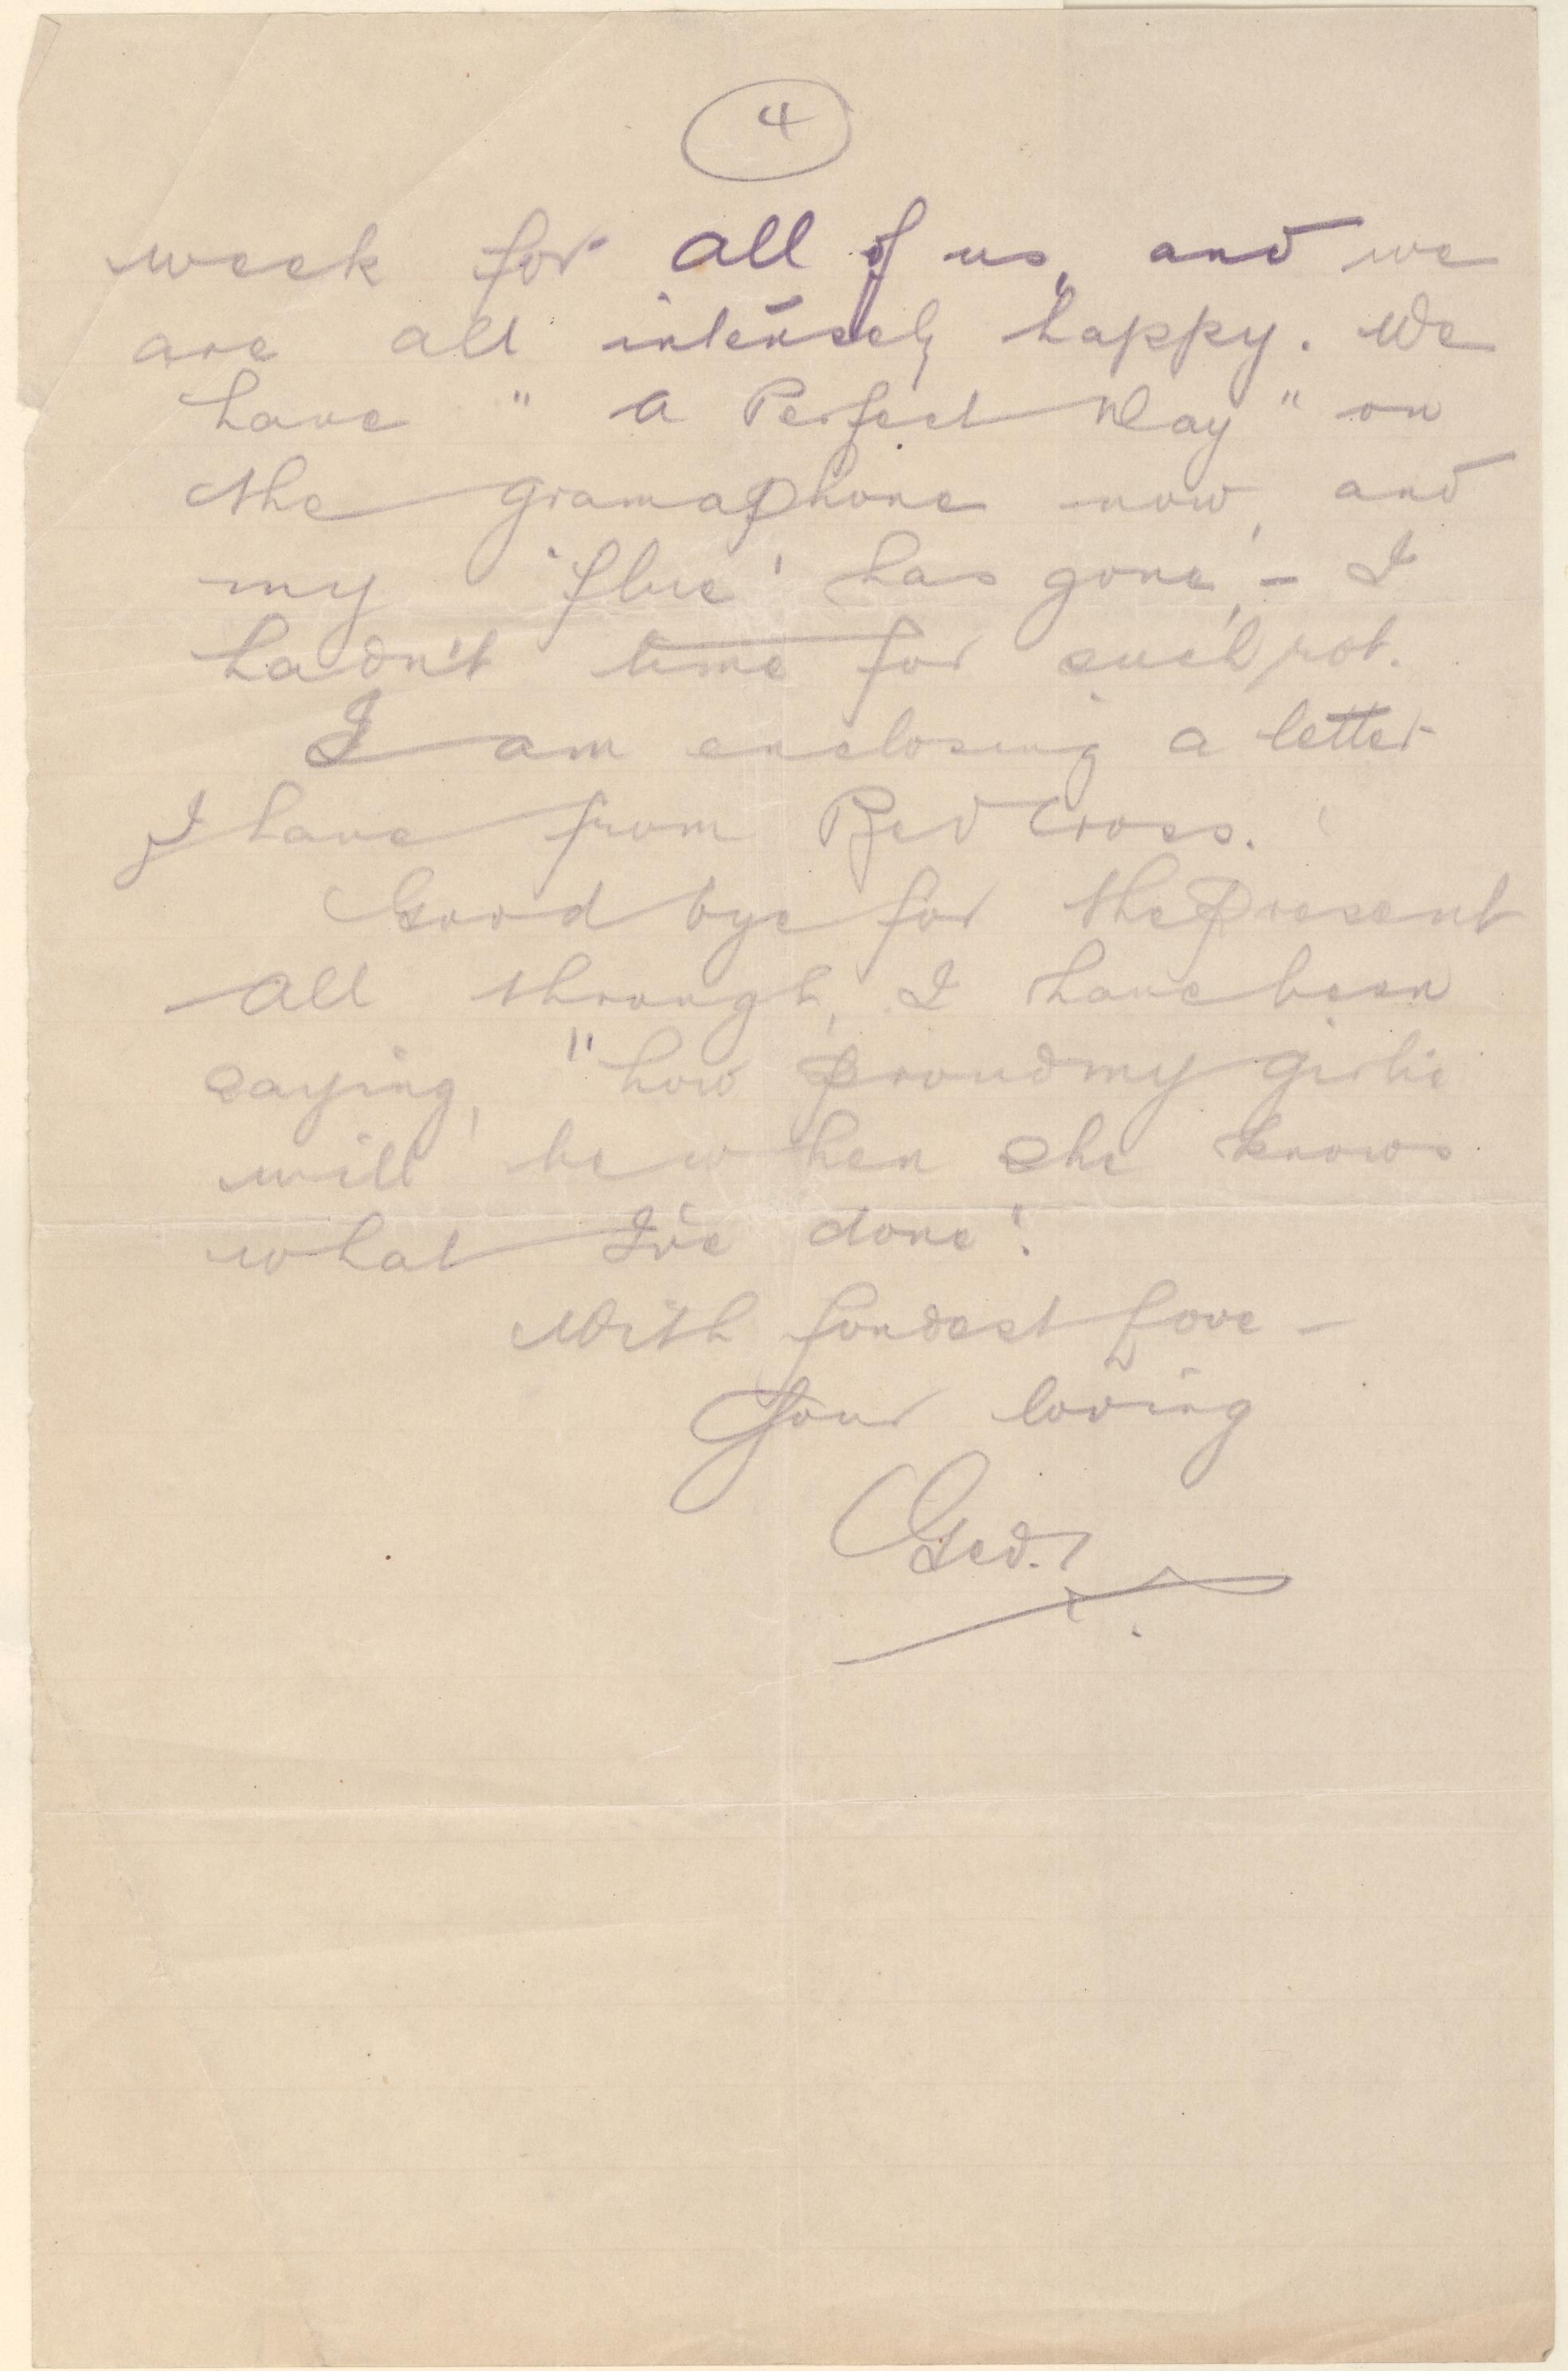 4
week for all of us, and we
are all intensely happy. We
have "A Perfect Day" on
the gramaphone now, and
my 'flue' has gone, - I
hadn't time for such rot.
I am enclosing a letter
I have from Red Cross.
Good bye for the present
All through, I have been
saying, "how proud my girlie
will be when she knows
what I've done".
With fondest love -
Your loving
Ged.